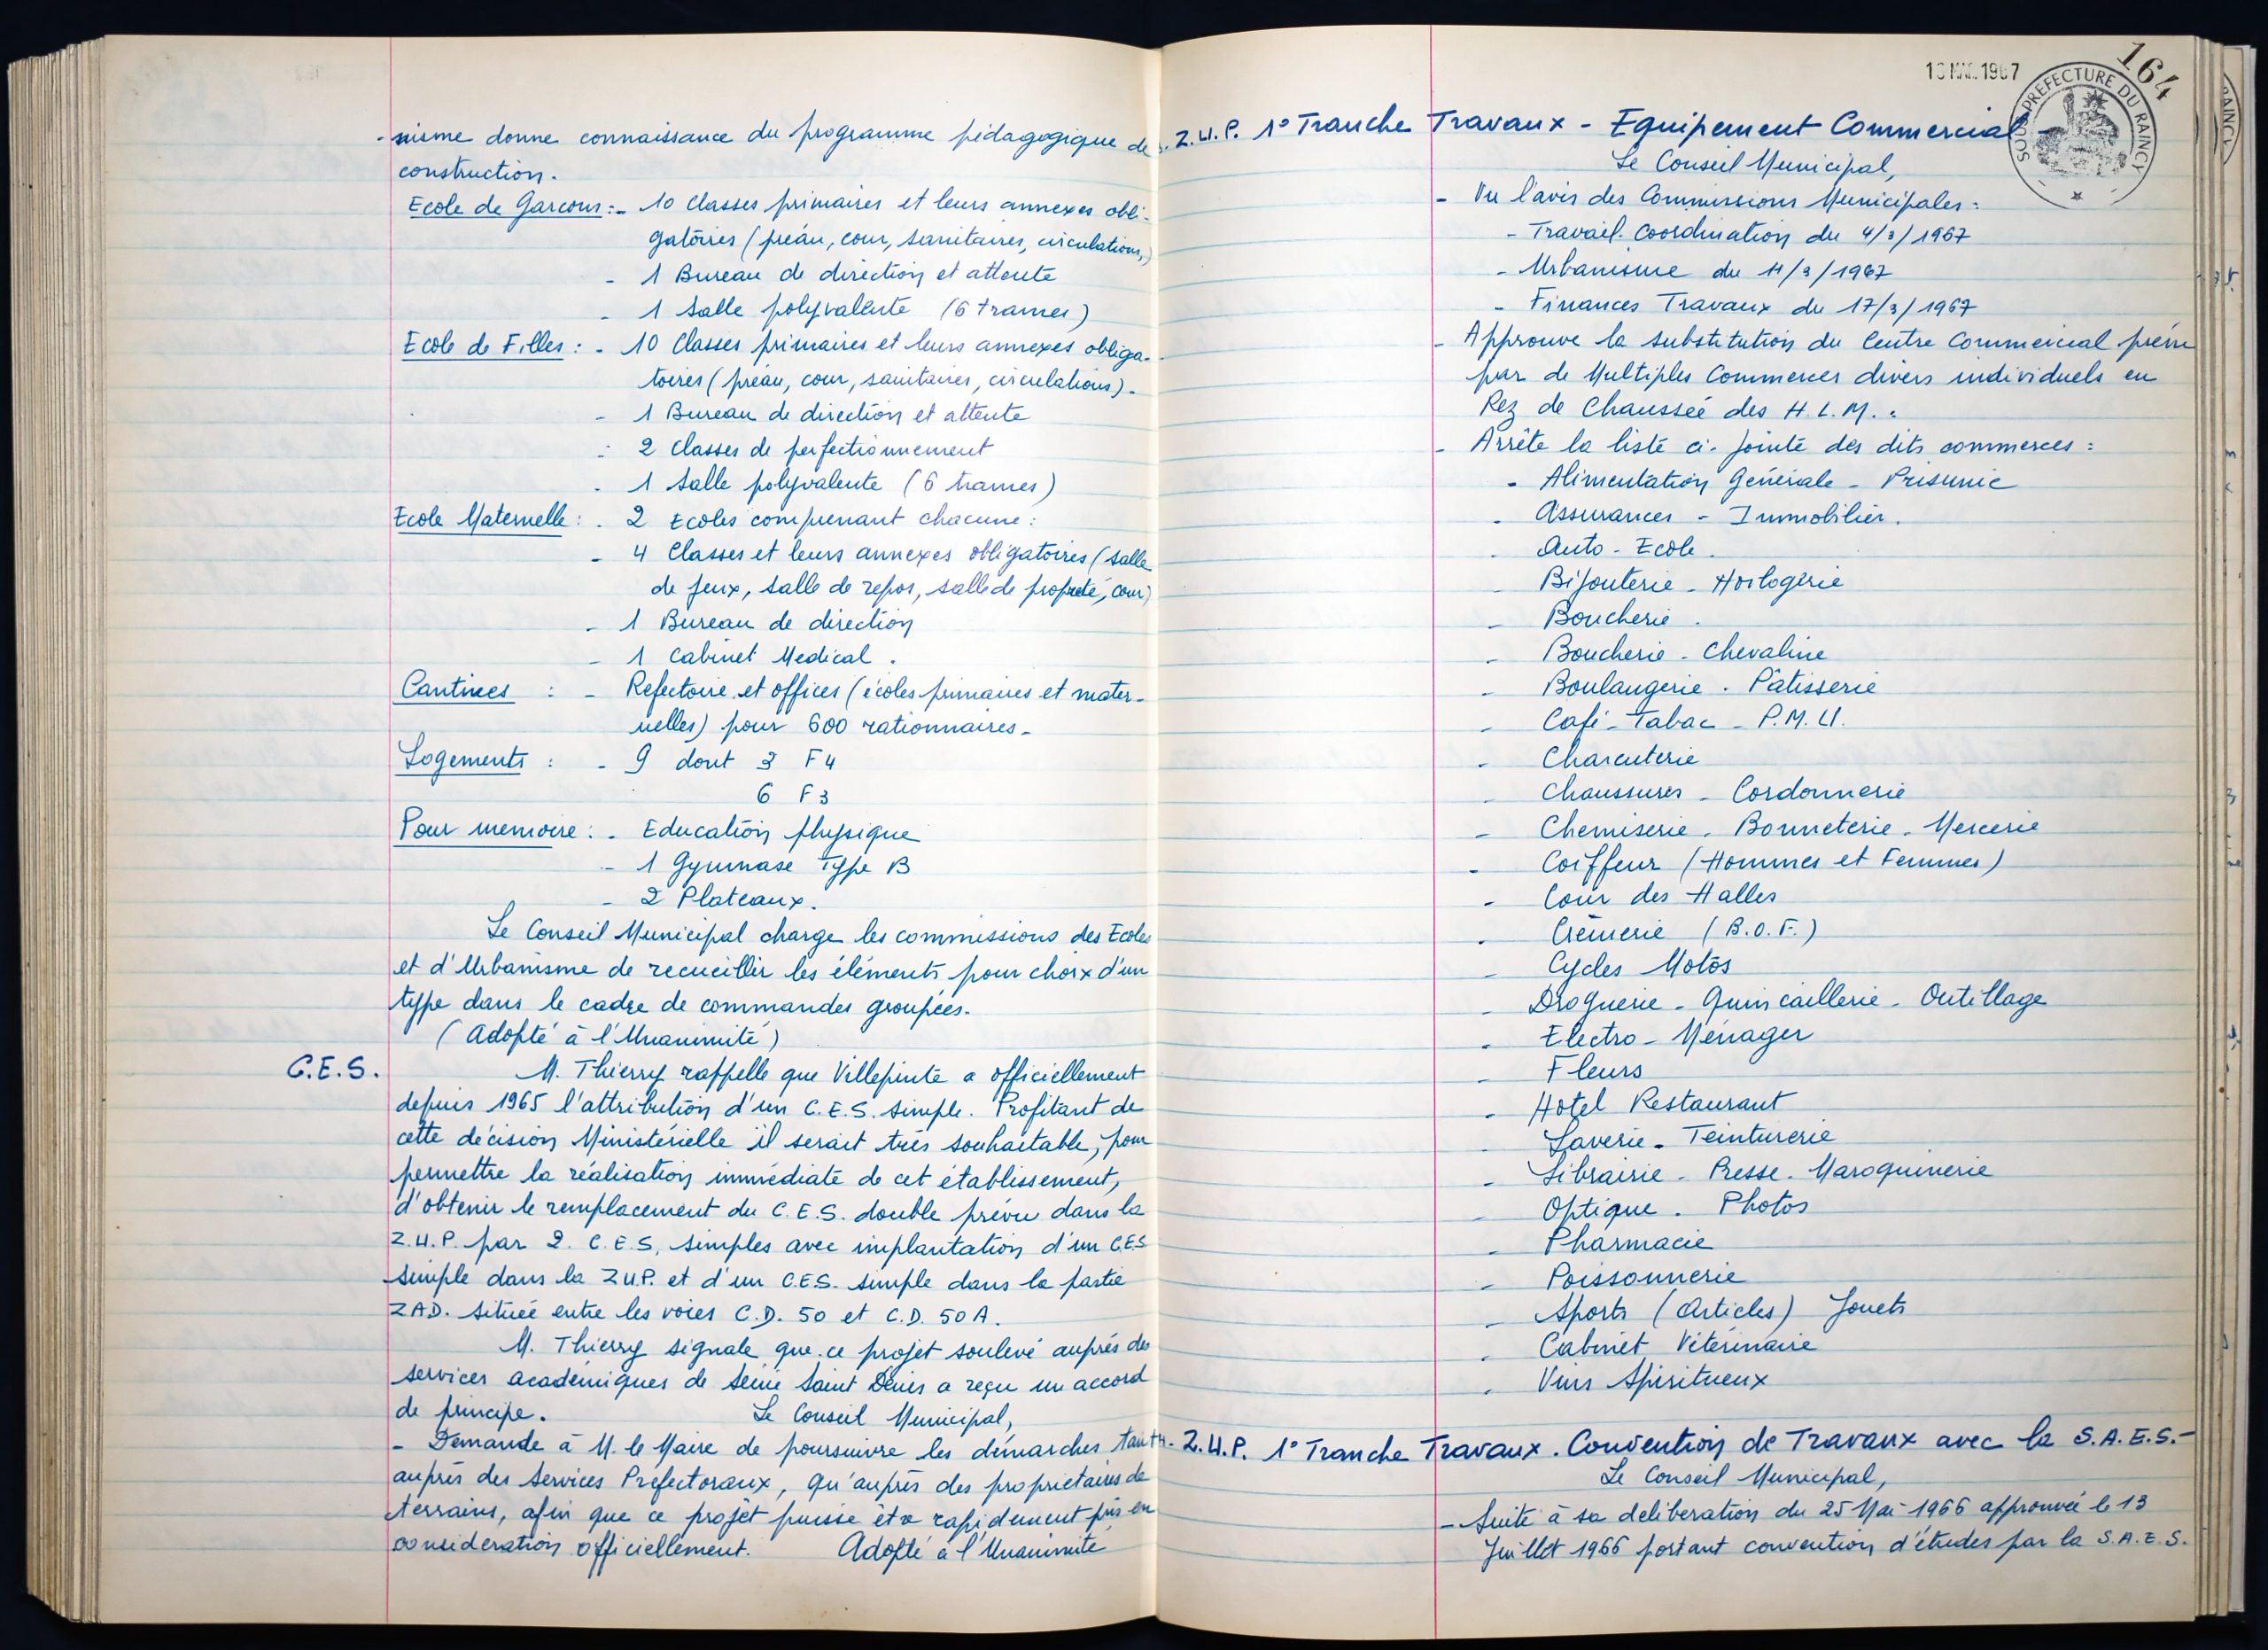 -nisme donne connaissance du programme pédagogique de
construction.
Ecole de Garçons :- 10 Classes primaires et leurs annexes obli-
gatoires (préau, cour, sanitaires, circulations,)
- 1 Bureau de direction et attente
- 1 Salle polyvalente (6 trames)
Ecole de Filles : - 10 Classes primaires et leurs annexes obliga-
toires (préau, cour, sanitaires, circulations)-
- 1 Bureau de direction et attente
- 2 Classes de perfectionnement
- 1 Salle polyvalente (6 trames)
Ecole Maternelle : - 2 Ecoles comprenant chacune :
- 4 Classes et leurs annexes obligatoires (salle
de jeux, salle de repos, salle de propreté, cour)
- 1 Bureau de direction
- 1 Cabinet Medical .
Cantines : - Refectoire et offices (écoles primaires et mater-
nelles) pour 600 rationnaires-
Logements : - 9 dont 3 F4
6 F3
Pour memoire : - Education physique
- 1 Gymnase Type B
- 2 Plateaux.
Le Conseil Municipal charge les commissions des Ecoles
et d'Urbanisme de recueillir les éléments pour choix d'un
type dans le cadre de commandes groupées.
(Adopté à l'Unanimité)
C.E.S.
M. Thierry rappelle que Villepinte a officiellement
depuis 1965 l'attribution d'un C.E.S. simple. Profitant de
cette décision Ministérielle il serait très souhaitable, pour
permettre la réalisation immédiate de cet établissement,
d'obtenir le remplacement du C.E.S. double prévu dans la
Z.U.P. par 2. C.E.S, simples avec implantation d'un C.E.S
simple dans la Z.U.P. et d'un C.E.S. simple dans la partie
ZAD. située entre les voies C.D. 50 et C.D. 50A.
M. Thierry signale que ce projet soulevé auprès des
services académiques de Seine Saint Denis a reçu un accord
de principe. Le Conseil Municipal,
- Demande à M. le Maire de poursuivre les démarches tant
auprès des Services Préfectoraux, qu'auprès des proprietaires de
terrains, afin que ce projet puisse être rapidement pris en
consideration officiellement. Adopté à l'Unanimité
1967
164
SOUS-PREFECTURE DU RAINCY
Z.U.P. 1° Tranche Travaux - Equipement Commercial -
Le Conseil Municipal,
- Vu l'avis des Commissions Municipales :
- Travail. Coordination du 4/3/1967
- Urbanisme du 11/3/1967
- Finances Travaux du 17/3/1967
- Approuve la substitution du Centre Commercial prévu
par de Multiples Commerces divers individuels en
Rez de Chaussée des H.L.M..
- Arrête la liste ci-jointe des dits commerces :
- Alimentation Générale - Prisunic
- Assurances - Immobilier.
- Auto-Ecole.
- Bijouterie - Horlogerie
- Boucherie .
- Boucherie - Chevaline
- Boulangerie . Pâtisserie
- Café-Tabac - P.M.U.
- Charcuterie
- Chaussures - Cordonnerie
- Chemiserie - Bonneterie - Mercerie
- Coiffeur (Hommes et Femmes)
- Cour des Halles
- Crémerie (B.O.F.)
- Cycles Motos
- Droguerie - Quincaillerie - Outillage
- Electro-Ménager
- Fleurs
- Hotel Restaurant
- Laverie - Teinturerie
- Librairie - Presse - Maroquinerie
- Optique . Photos
- Pharmacie
- Poissonnerie
- Sports (Articles) Jouets
- Cabinet Vétérinaire
- Vins Spiritueux
Z.U.P. 1° Tranche Travaux. Convention de Travaux avec la S.A.E.S.-
Le Conseil Municipal,
- Suite à sa deliberation du 25 Mai 1966 approuvée le 13
Juillet 1966 portant convention d'études par la S.A.E.S.